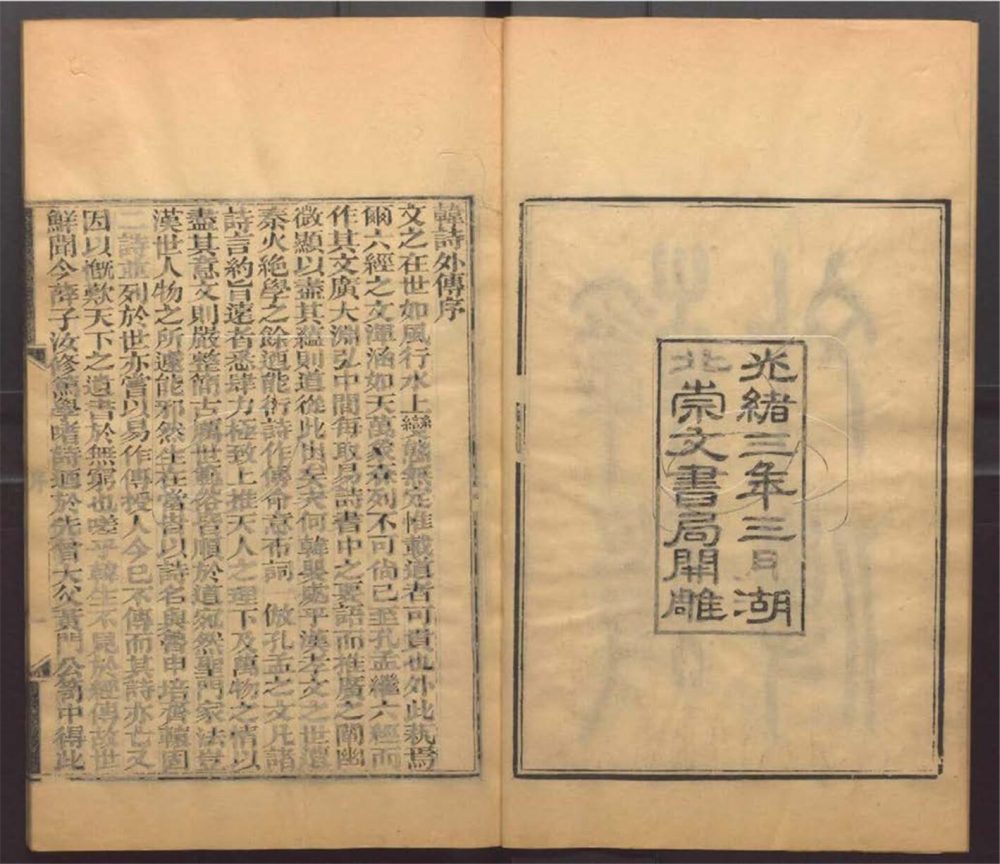 光緒三年三月湖
北崇文書局開雕
韓詩外傳序
文之在世如風行水上變態無定惟載道者可貴也外此孰焉
爾六經之文渾涵如天萬象森列不可尚已至孔孟繼六經而
作其文廣大淵弘中間每取易詩書中之要語而推廣之闡幽
微顯以盡其蘊則道從此出矣夫何韓嬰處乎漢孝文之世還
秦火絶學之餘迺能衍詩作傳命意布詞倣孔孟之文凡諸
詩言約旨遠者悉肆力極致上推天人之理下及萬物之情以
盡其意文則嚴整簡古厲世範俗皆順於道宛然聖門家法豈
漢世人物之所遽能邪然生在當昔以詩名與魯申培齊轅固
二詩並列於世亦嘗以易作傳授人今已不傳而其詩亦亡又
因以慨歎天下之遺書於無窮也嗟乎韓生不見於經傳故世
鮮聞今薛子汝修篤學嗜詩迺於先曾大父黃門公笥中得此